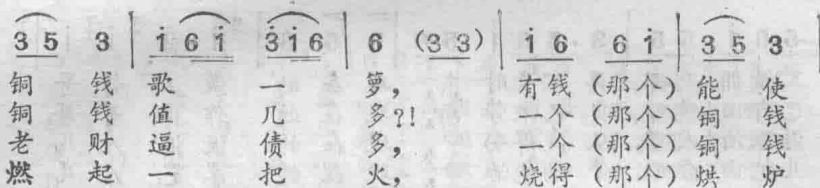 3 5 3 | i 6 i 3 i 6 | 6 (3 3) | i 6 6 i | 3 5 3
铜 钱 歌 一 箩， 有钱（那个）能 使
铜 钱 值 几 多?! 一个（那个）铜 钱
老 财 逼 债 多， 一个（那个）铜 钱
燃 起 一 把 火， 烧得（那个）烘 炉